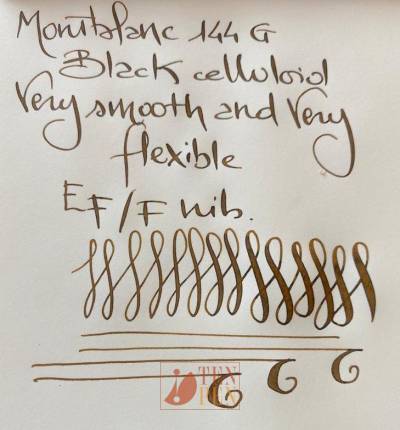 Montblanc 144 G
Black celluloid
Very smooth and Very
flexible
EF/F nib.
TEN
PEN